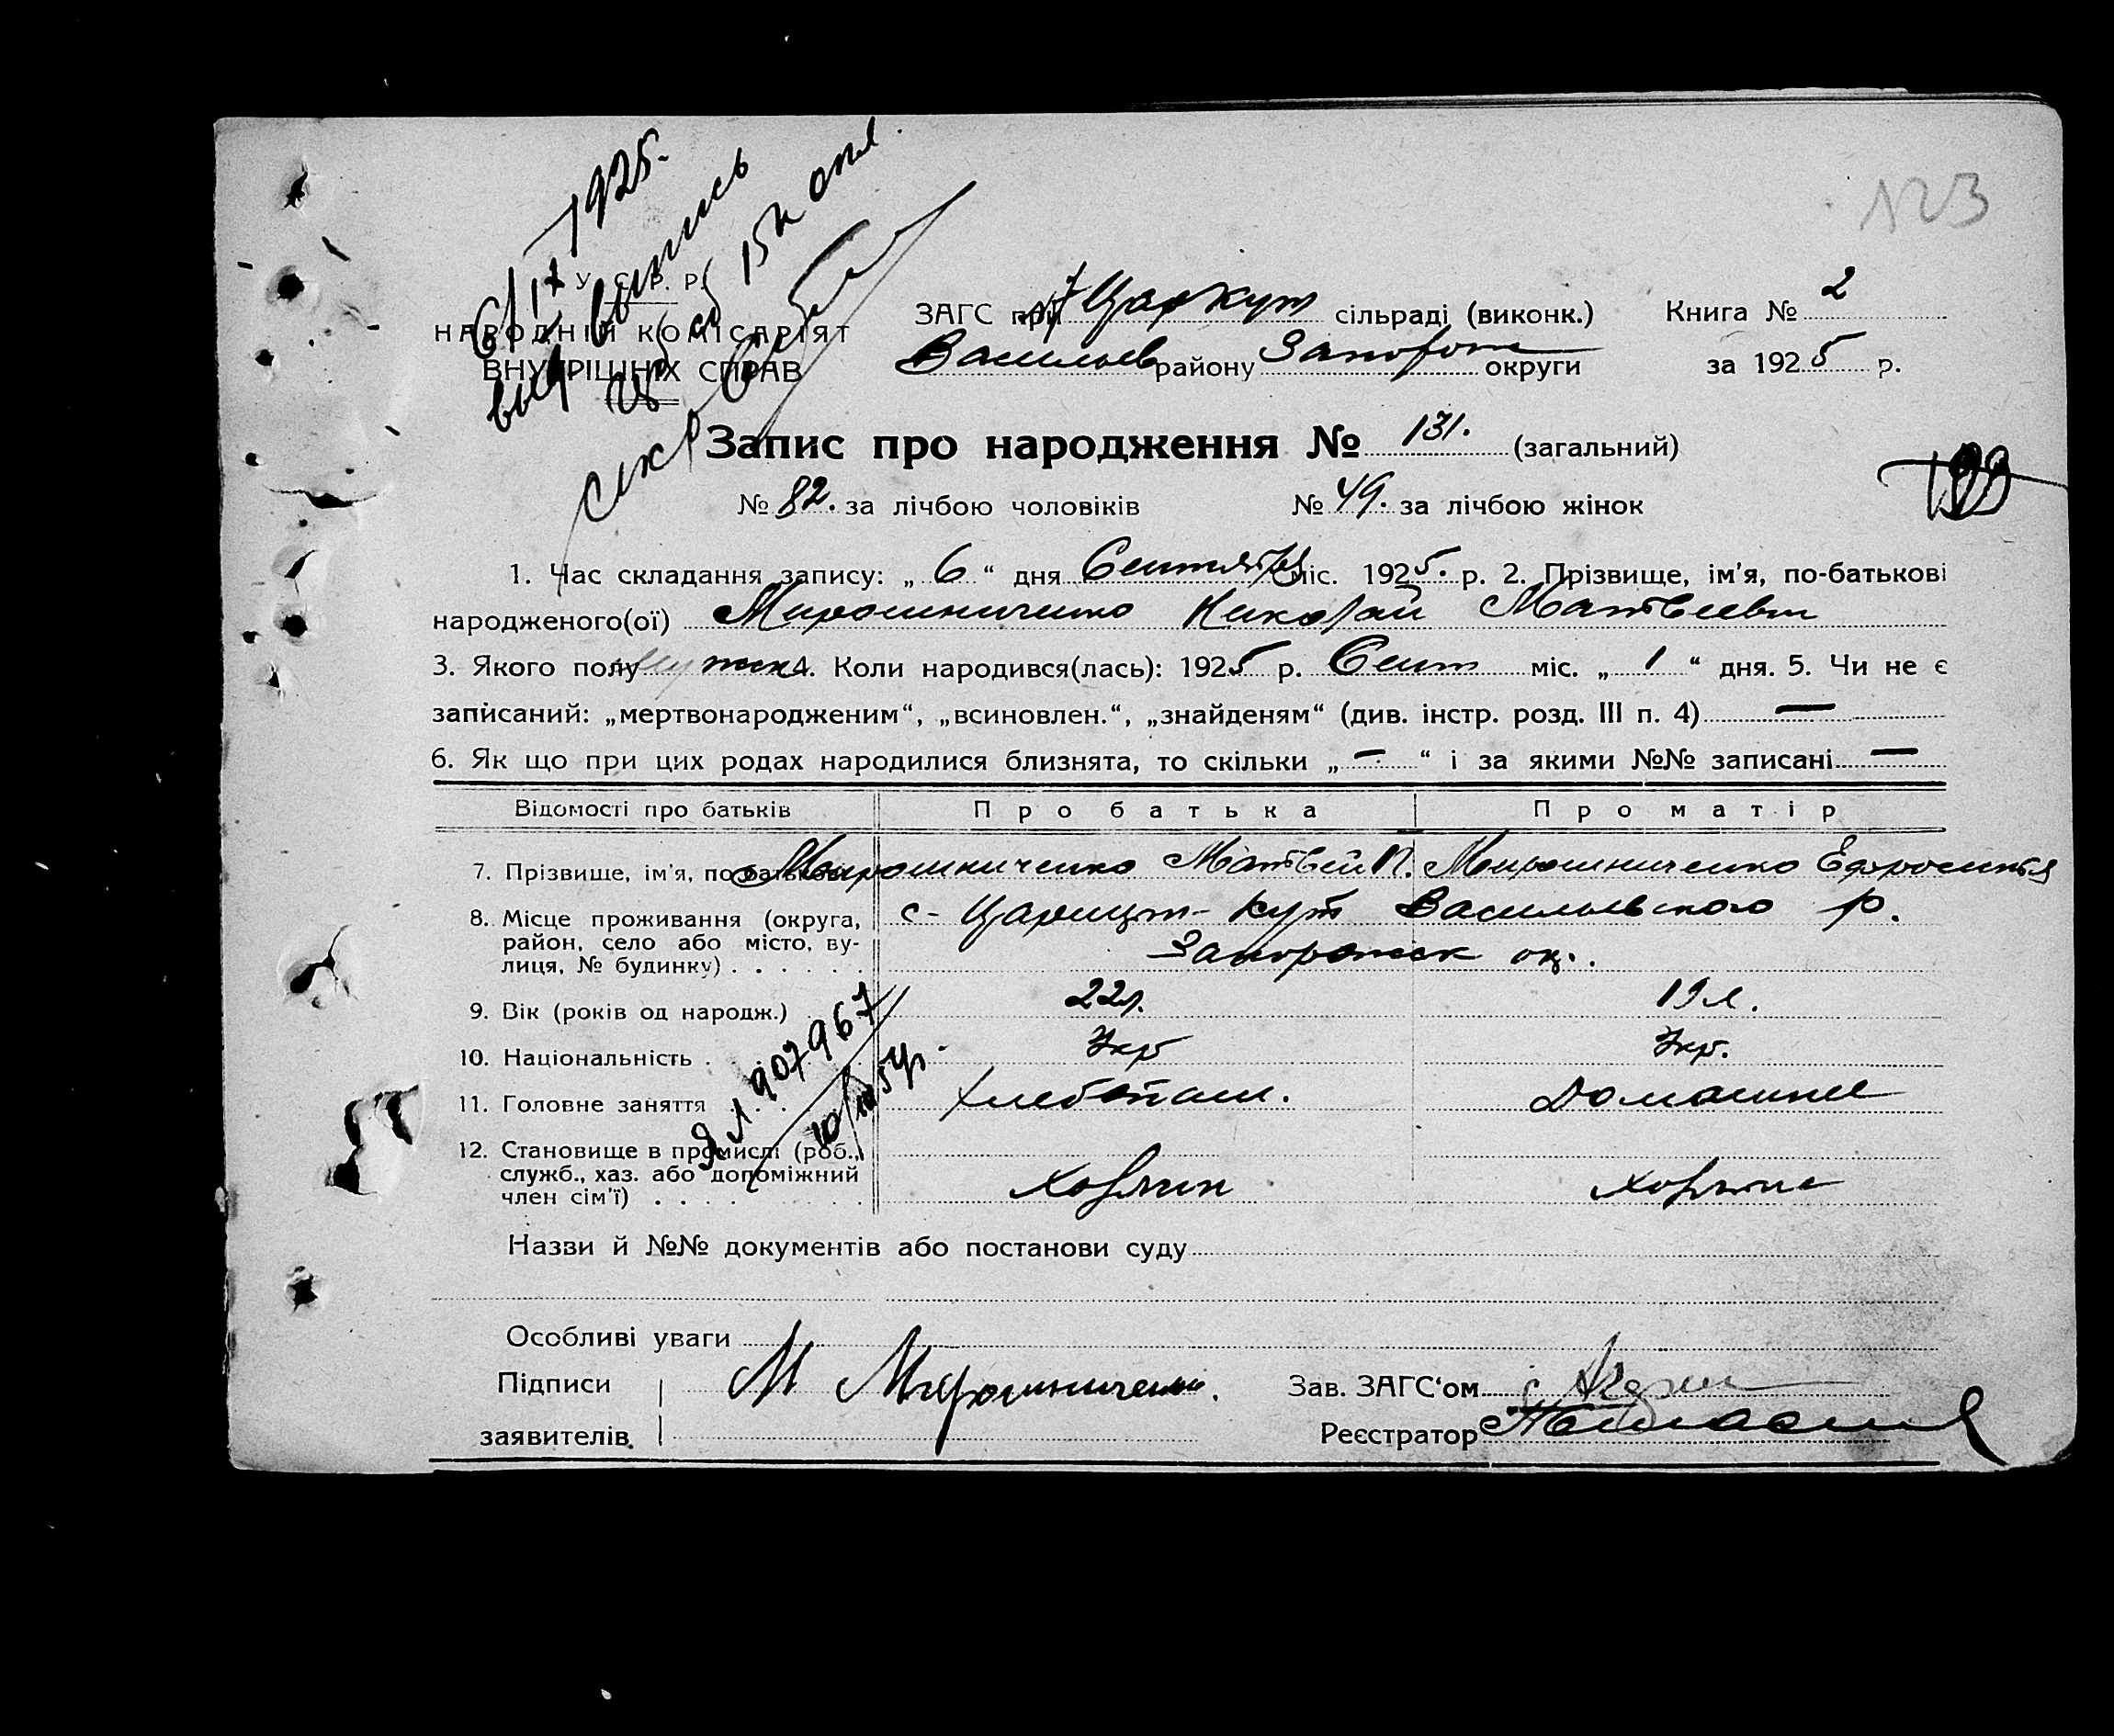 6/IX 1925.
выд выпись
сб 15к опл
№3
У. С. Р. Р.
НАРОДНІЙ КОМІСАРІЯТ
ВНУТРІШНІХ СПРАВ
ЗАГС при Царкут сільраді (виконк.) Книга № 2
Васильев району Запорож округи за 1925 р.
Запис про народження № 131. (загальний)
№ 82. за лічбою чоловіків № 49. за лічбою жінок
1. Час складання запису: „ 6 “ дня Сентября міс. 1925. р. 2. Прізвище, ім'я, по-батькові
народженого(ої) Мирошниченко Николай Матвеевич
3. Якого полу мужск 4. Коли народився(лась): 1925 р. Сент міс. „ 1 “ дня. 5. Чи не є
записаний: „мертвонародженим“, „всиновлен.“, „знайденям“ (див. інстр. розд. III п. 4) —
6. Як що при цих родах народилися близнята, то скільки „ — “ і за якими №№ записані —
Відомості про батьків Про батька Про матір
7. Прізвище, ім'я, по батькові Мирошниченко Матвей П. Мирошниченко Ефросинья
8. Місце проживання (округа, с- Царицын- Кут Васильевского р.
район, село або місто, ву-
лиця, № будинку) . . . . . . Запорожск ок.
9. Вік (років од народж.) 22л. 19л.
10. Національність . Укр Укр.
11. Головне заняття Хлебопаш. Домашнее
12. Становище в промислі (роб.,
служб., хаз. або допоміжний
член сім'ї) . . . . Хозяин
ЯЛ 907967
Назви й №№ документів або постанови суду
Особливі уваги
Підписи М Мирошниченко. Зав. ЗАГС‘ом
заявителів. Реєстратор